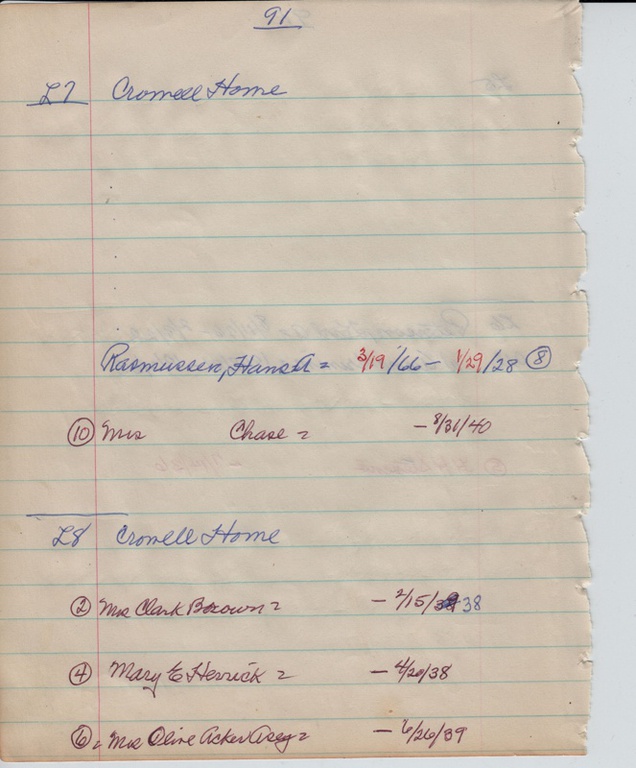 91
L7 Cromell Home
Rasmussen, Hans A = 3/19/66 - 1/29/28 (8)
(10) Mrs Chase = - 8/31/40
L8 Crowell Home
(2) Mrs Clark Brown = - 2/15/38
(4) Mary E Herrick = - 4/20/38
(6) = Mrs Olive Acker = - 6/26/39